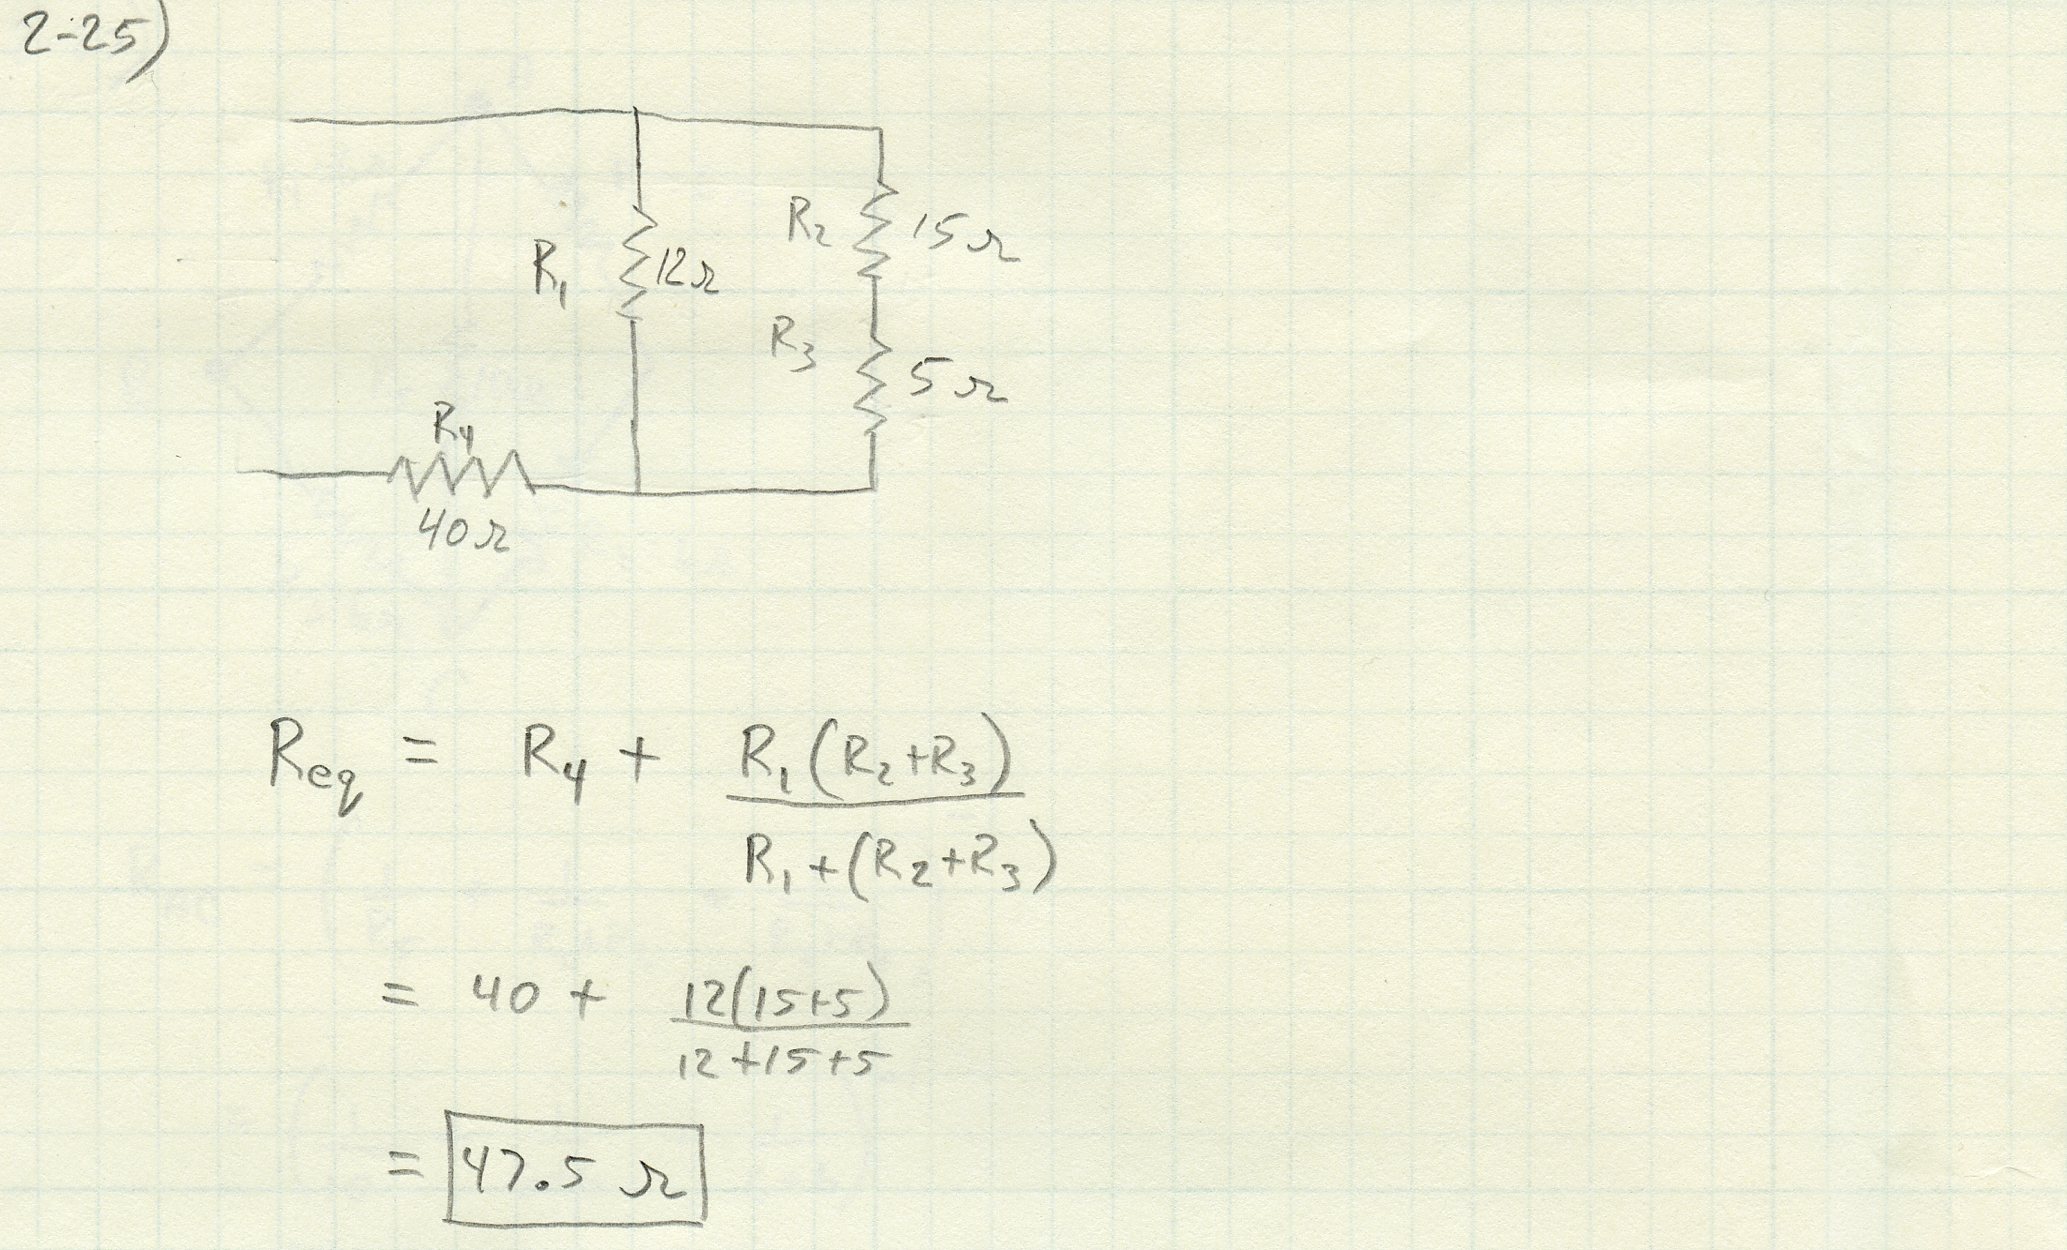 2-25)
R1 12Ω
R2 15Ω
R3 5Ω
R4
40Ω
Req = R4 + R1(R2+R3)
R1+(R2+R3)
= 40 + 12(15+5)
12+15+5
= 47.5 Ω